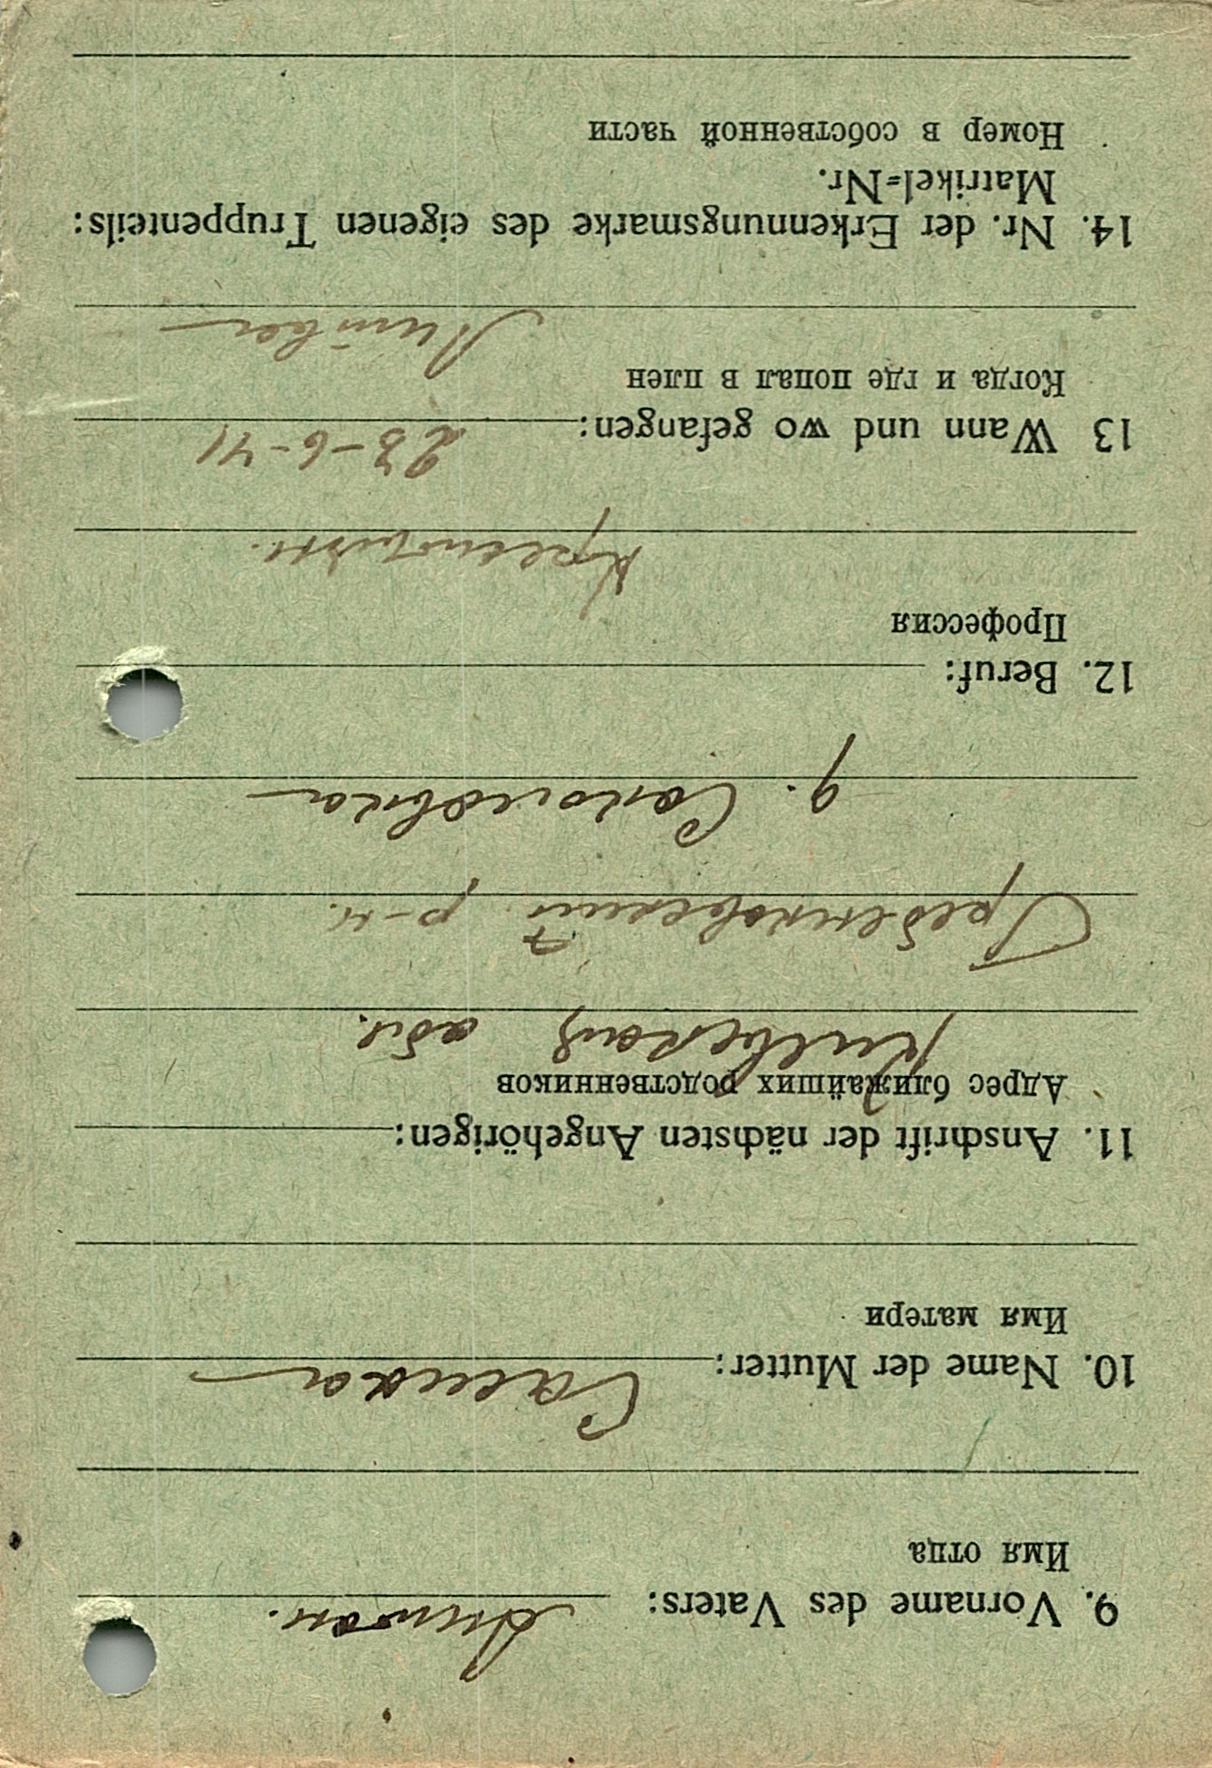 9. Vorname des Vaters: Антон.
Имя отца
10. Name der Mutter:
Имя матери
11. Anschrift der nächsten Angehörigen:
Адрес ближайших родственников
Киевская обл.
Гребенковский р-н.
д. Соколовка
12. Beruf:
Профессия
Крестьян.
13 Wann und wo gefangen: 28-6-41
Когда и где попал в плен
Литва
14. Nr. der Erkennungsmarke des eigenen Truppenteils:
Matrikel=Nr.
Номер в собственной части